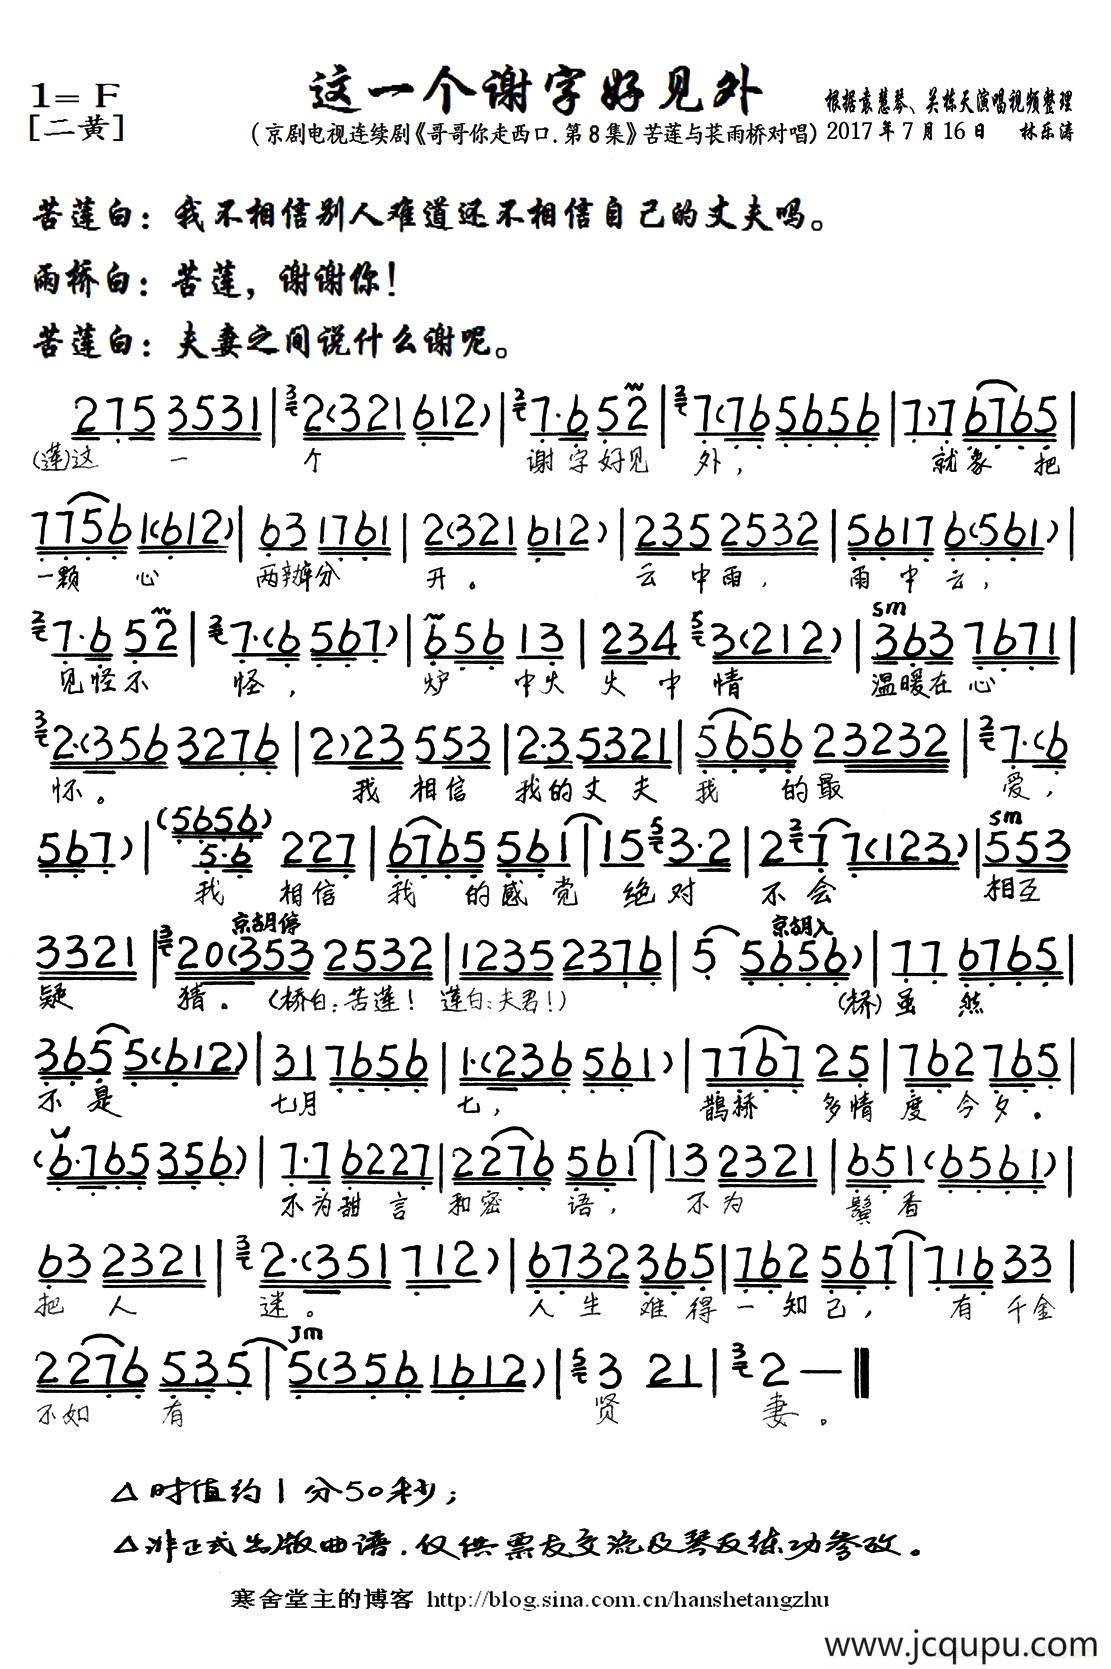 这一个谢字好见外
1= F
[二黄]
(京剧电视连续剧《哥哥你走西口.第8集》苦莲与苌雨桥对唱)
根据袁慧琴、关栋天演唱视频整理
2017年7月16日 林乐涛
苦莲白：我不相信别人难道还不相信自己的丈夫吗。
雨桥白：苦莲，谢谢你！
苦莲白：夫妻之间说什么谢呢。
275 3531 | 2(321 612) | 7·6 52 | 7(76 5656 | 7)7 6765 |
(莲)这 一 个 谢字好见 外， 就象 把
7756 1(612) | 63 1761 | 2(321 612) | 235 2532 | 5617 6(561) |
一颗 心 两瓣分 开。 云中雨， 雨中云，
7·6 52 | 7·(6 567) | 656 13 | 234 3(212) | 363 7671 |
见怪不 怪， 炉 中火 火中情 温暖在心
sm
2·(356 3276 | 2)23 553 | 2·3 5321 | 5656 23232 | 7·(6
怀。 我 相信 我的丈夫 我 的最 爱，
567) | (5656) 5·6 227 | 6765 561 | 15 3·2 | 27 7(123) | 553
我 相信 我 的感觉 绝对 不会 相互
sm
3321 | 20(353 2532 | 1235 2376 | 5 5656) | 77 6765 |
京胡停 京胡入
疑 猜。 (桥白：苦莲！ 莲白：夫君！) (桥)虽 然
365 5(612) | 31 7656 | 1·(236 561) | 7767 25 | 762 765 |
不是 七月 七， 鹊桥 多情 度今夕。
(6·765 356) | 7·7 6227 | 2276 561 | 13 2321 | 651 (6561) |
不为甜言 和密 语， 不为 鬓香
63 2321 | 2·(351 712) | 6732 365 | 762 567 | 716 33 |
把 人 迷。 人生 难得一知己， 有 千金
2276 535 | 5(356 1612) | 3 21 | 2 — ‖
Jm
不如 有 贤 妻。
△时值约1分50秒；
△非正式出版曲谱.仅供票友交流及琴友练功参改。
寒舍堂主的博客 http://blog.sina.com.cn/hanshetangzhu
www.jcqupu.com